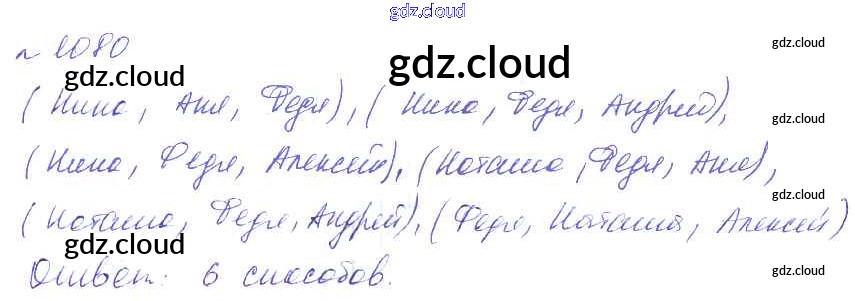 gdz.cloud
№ 1080
gdz.cloud
gdz.cloud
gdz.cloud
(Нина, Аня, Федя), (Нина, Федя, Андрей),
gdz.cloud
(Нина, Федя, Алексей), (Наташа, Федя, Аня),
gdz.cloud
(Наташа, Федя, Андрей), (Федя, Наташа, Алексей)
gdz.cloud
gdz.cloud
Ответ: 6 способов.
gdz.cloud